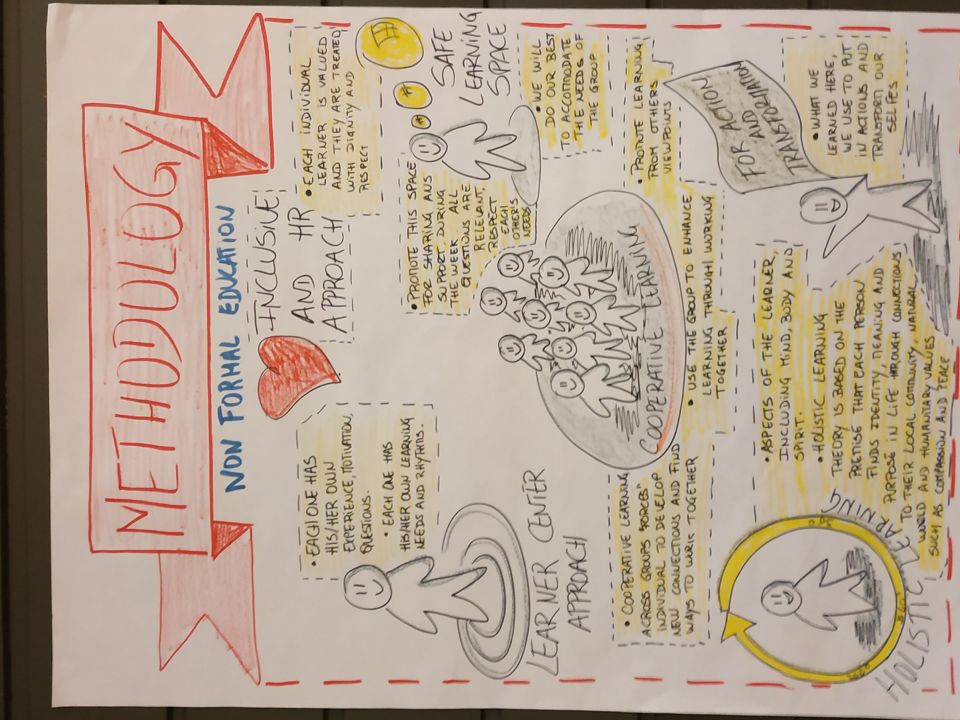 METHODOLOGY
NON FORMAL EDUCATION
INCLUSIVE
AND HR
APPROACH
• EACH INDIVIDUAL
LEARNER IS VALUED
AND THEY ARE TREATED
WITH DIGNITY AND
RESPECT
• EACH ONE HAS
HIS/HER OWN
EXPERIENCE, MOTIVATION,
QUESTIONS.
• EACH ONE HAS
HIS/HER OWN LEARNING
NEEDS AND RHYTHMS.
LEARNER CENTER
APPROACH
• PROMOTE THIS SPACE
FOR SHARING ANS
SUPPORT, DURING
THE WEEK ALL
QUESTIONS ARE
RELEVANT,
RESPECT
EACH
OTHERS
NEEDS
SAFE
LEARNING
SPACE
• WE WILL
DO OUR BEST
TO ACCOMMODATE
THE NEEDS OF
THE GROUP
• COOPERATIVE LEARNING
ACROSS GROUPS "FORCES"
INDIVIDUAL TO DEVELOP
NEW CONNECTIONS AND FIND
WAYS TO WORK TOGETHER
COOPERATIVE LEARNING
• USE THE GROUP TO ENHANCE
LEARNING THROUGH WORKING
TOGETHER
• PROMOTE LEARNING
FROM OTHERS
VIEWPOINTS
FOR ACTION
AND
TRANSFORMATION
• WHAT WE
LEARNED HERE,
WE USE TO PUT
IN ACTIONS AND
TRANSFORM OUR
SELFES
HOLISTIC LEARNING
• ASPECTS OF THE LEARNER,
INCLUDING MIND, BODY AND
SPIRIT.
• HOLISTIC LEARNING
THEORY IS BASED ON THE
PREMISE THAT EACH PERSON
FINDS IDENTITY, MEANING AND
PURPOSE IN LIFE THROUGH CONNECTIONS
TO THEIR LOCAL COMMUNITY, NATURAL
WORLD AND HUMANITARY VALUES
SUCH AS COMPASSION AND PEACE